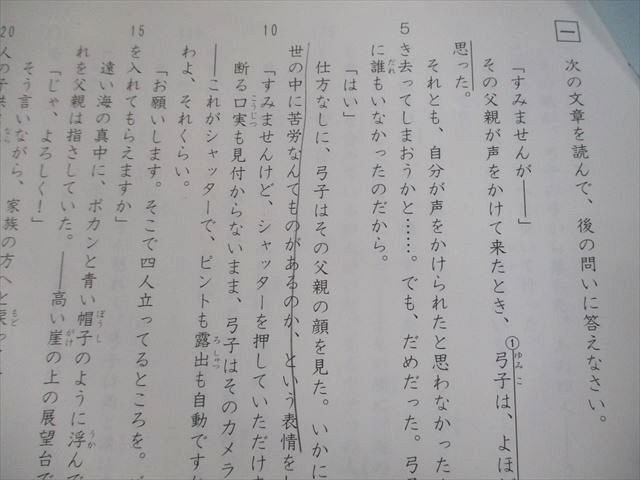 一 次の文章を読んで、後の問いに答えなさい。
「すみませんが――」
その父親が声をかけて来たとき、①弓子は、よほど
思った。
それとも、自分が声をかけられたと思わなかった
5 き去ってしまおうかと……。でも、だめだった。弓子
に誰もいなかったのだから。
「はい」
仕方なしに、弓子はその父親の顔を見た。いかに
世の中に苦労なんてものがあるのか、という表情をし
10 「すみませんけど、シャッターを押していただけ
断る口実も見付からないまま、弓子はそのカメラ
――これがシャッターで、ピントも露出も自動です
わよ、それくらい。
「お願いします。そこで四人立ってるところを。
15 を入れてもらえますか」
遠い海の真中に、ポカンと青い帽子のように浮んで
れを父親は指さしていた。――高い崖の上の展望台で
「じゃ、よろしく！」
そう言いながら、家族の方へと戻って
20 人の子供